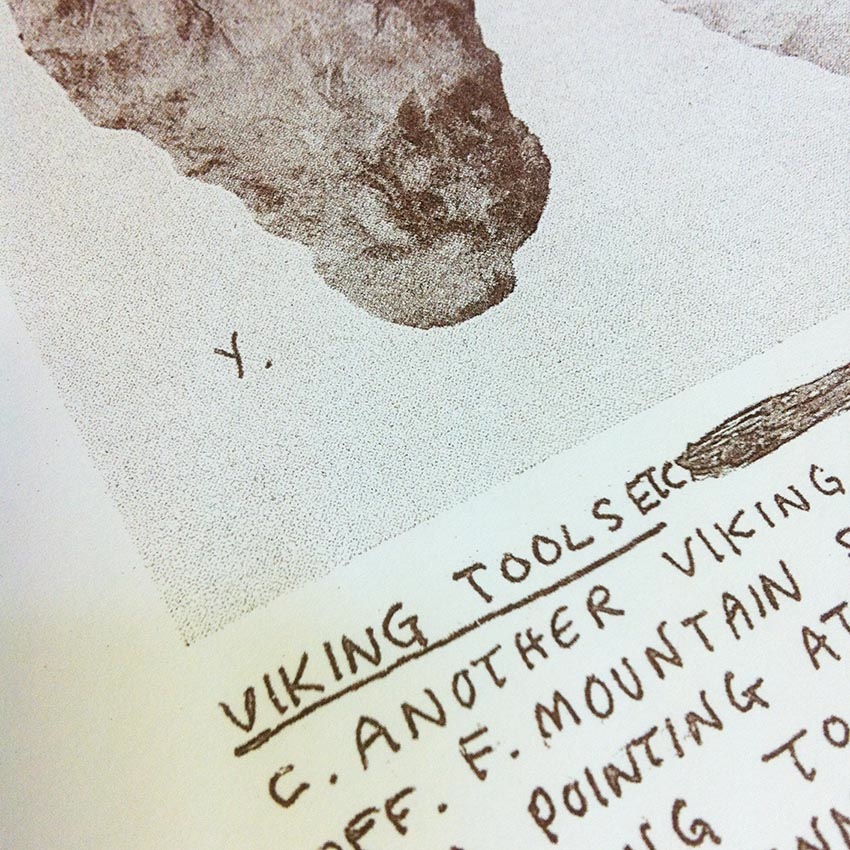 Y.
VIKING TOOLS ETC
C. ANOTHER VIKING
OFF. F. MOUNTAIN
POINTING AT
TO